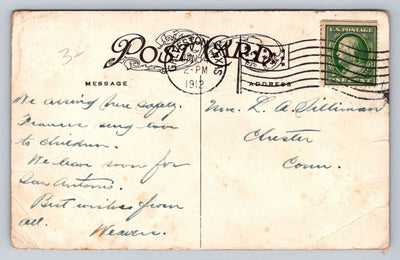 3-
POST CARD
GALVESTON TEXAS
2-PM
1912
U.S. POSTAGE
ONE CENT
MESSAGE
ADDRESS
We arriving here safely.
love
to children.
We leave soon for
San Antonio.
Best wishes from
all.
Weavers.
Mrs. L. A. Silliman
Chester
Conn.